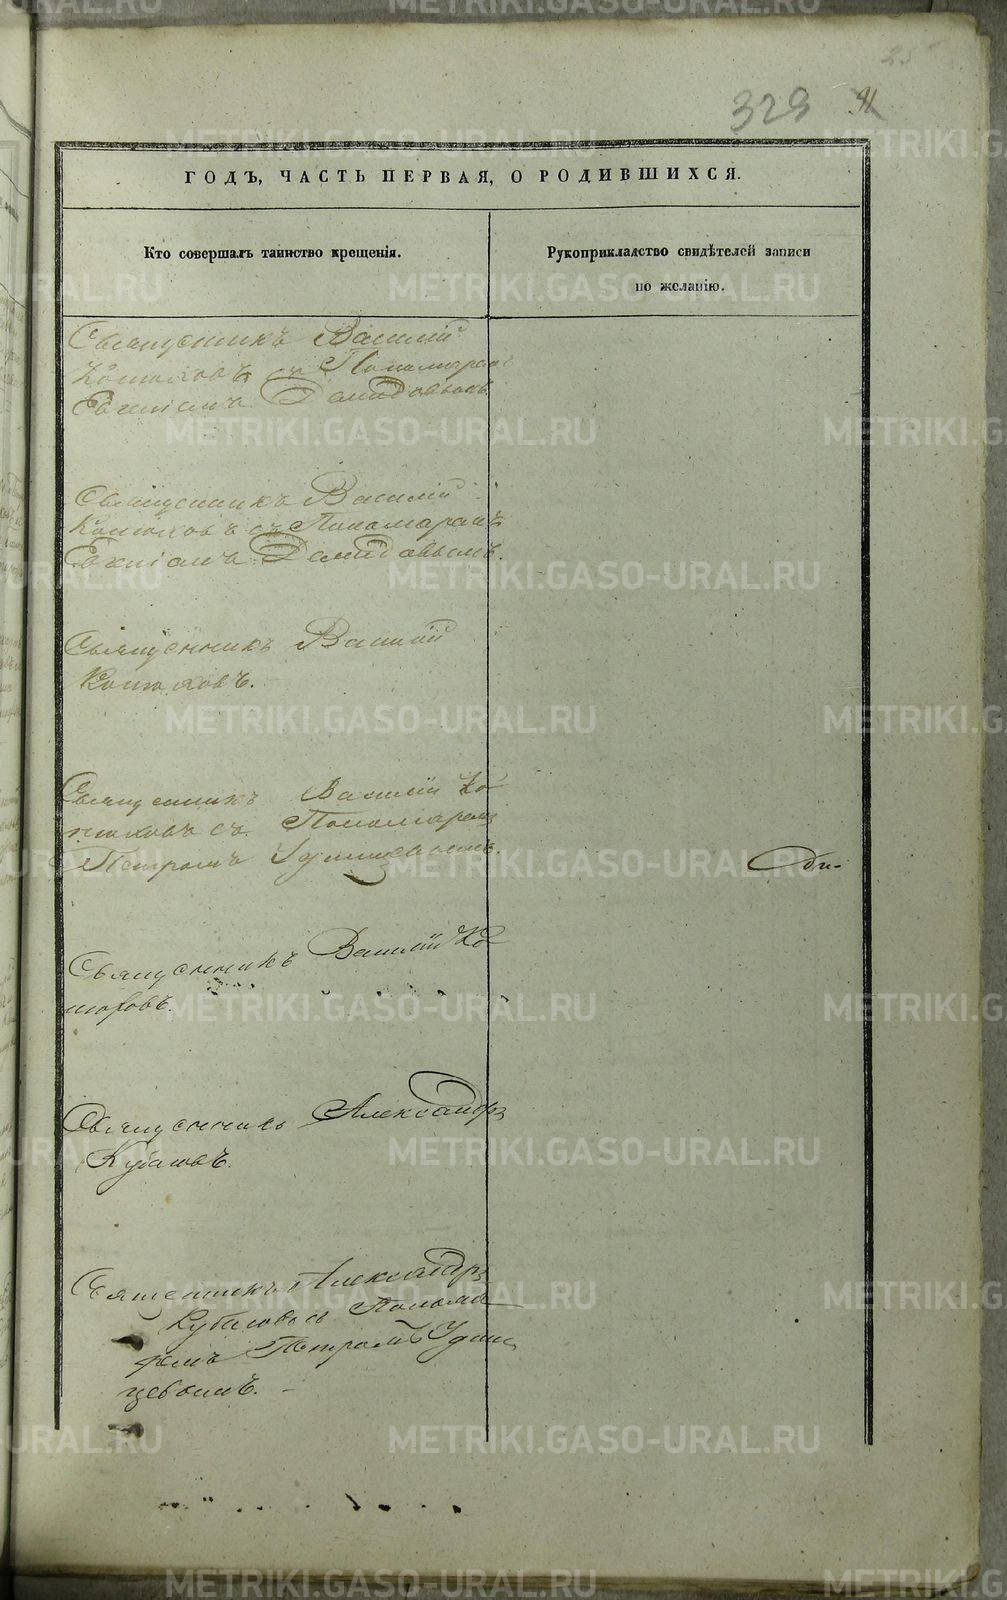 25
329 91
ГОДЪ, ЧАСТЬ ПЕРВАЯ, О РОДИВШИХСЯ.
Кто совершалъ таинство крещенія.
Рукоприкладство свидѣтелей записи
по желанію.
Священникъ Василій
Конюховъ съ Пономаремъ
Евгеніемъ Демидовымъ
Священникъ Василій
Конюховъ съ Пономаремъ
Евгеніемъ Демидовымъ.
Священникъ Василій
Конюховъ.
Священникъ Василій Ко
нюховъ съ Пономаремъ
Петромъ Удинцевымъ.
Священникъ Василій Ко
нюховъ.
Священникъ Александръ
Священникъ Александръ
съ Понома
ремъ Петромъ Удин
цевымъ.
METRIKI.GASO-URAL.RU